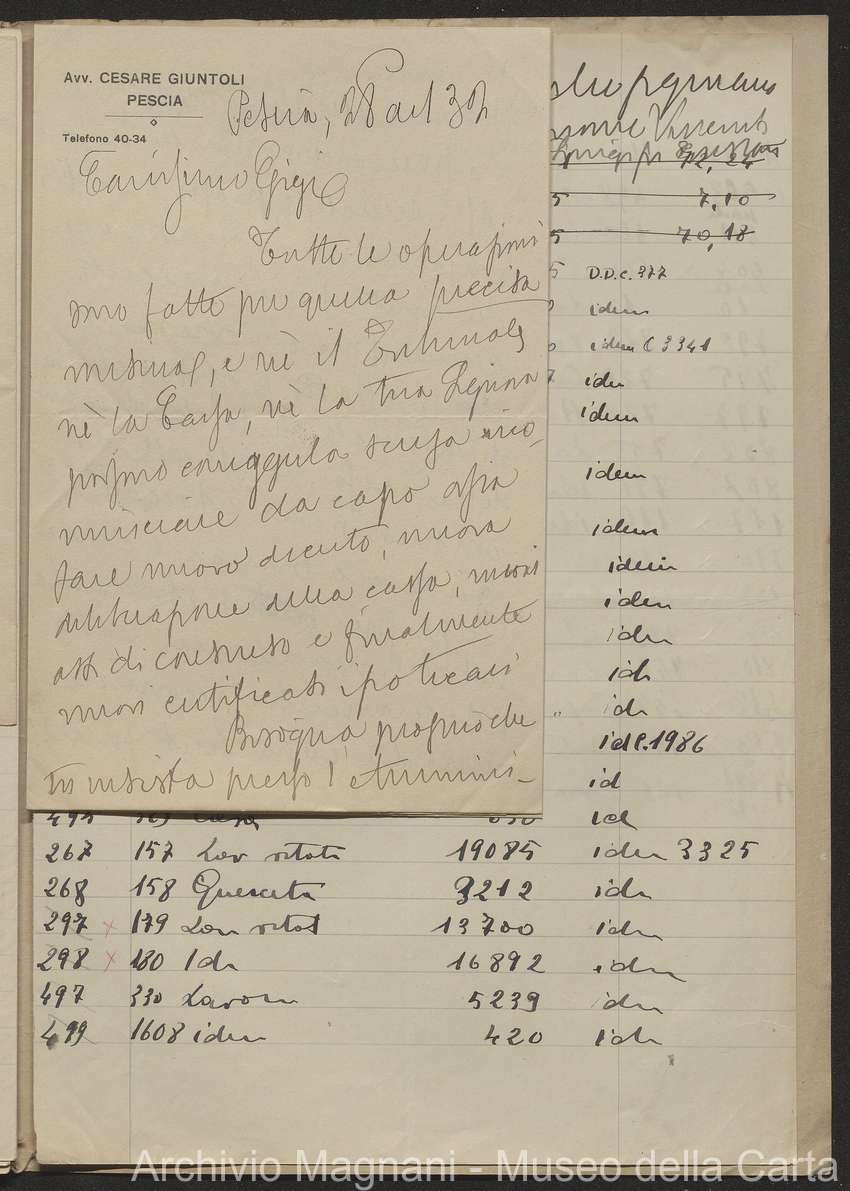 Avv. CESARE GIUNTOLI
PESCIA
Telefono 40-34
Pescia, 28 32
Carissimo Gigi
Tutte le operazioni
sono fatte per quella precisa
misura, e nè il Tribunale
nè la Cassa, nè la tua Signora
possono correggerla senza rico-
minciare da capo ossia
fare nuovo decreto, nuova
deliberazione della cassa, nuovi
atti di consenso e finalmente
nuovi certificati ipotecari
Bisogna proprio che
tu insista presso l'
72,24
5 7,10
5 70,18
5 D.D.C. 377
idem
idem C 3341
7 idem
idem
idem
idem
idem
idem
idem
id
" id
id C. 1986
id
495 id
267 157 Lav 19085 idem 3325
268 158 Querceta 3212 idem
297 x 179 13700 idem
298 x 180 Id 16892 idem
497 330 Lavor 5239 idem
499 1608 idem 420 id
Archivio Magnani - Museo della Carta